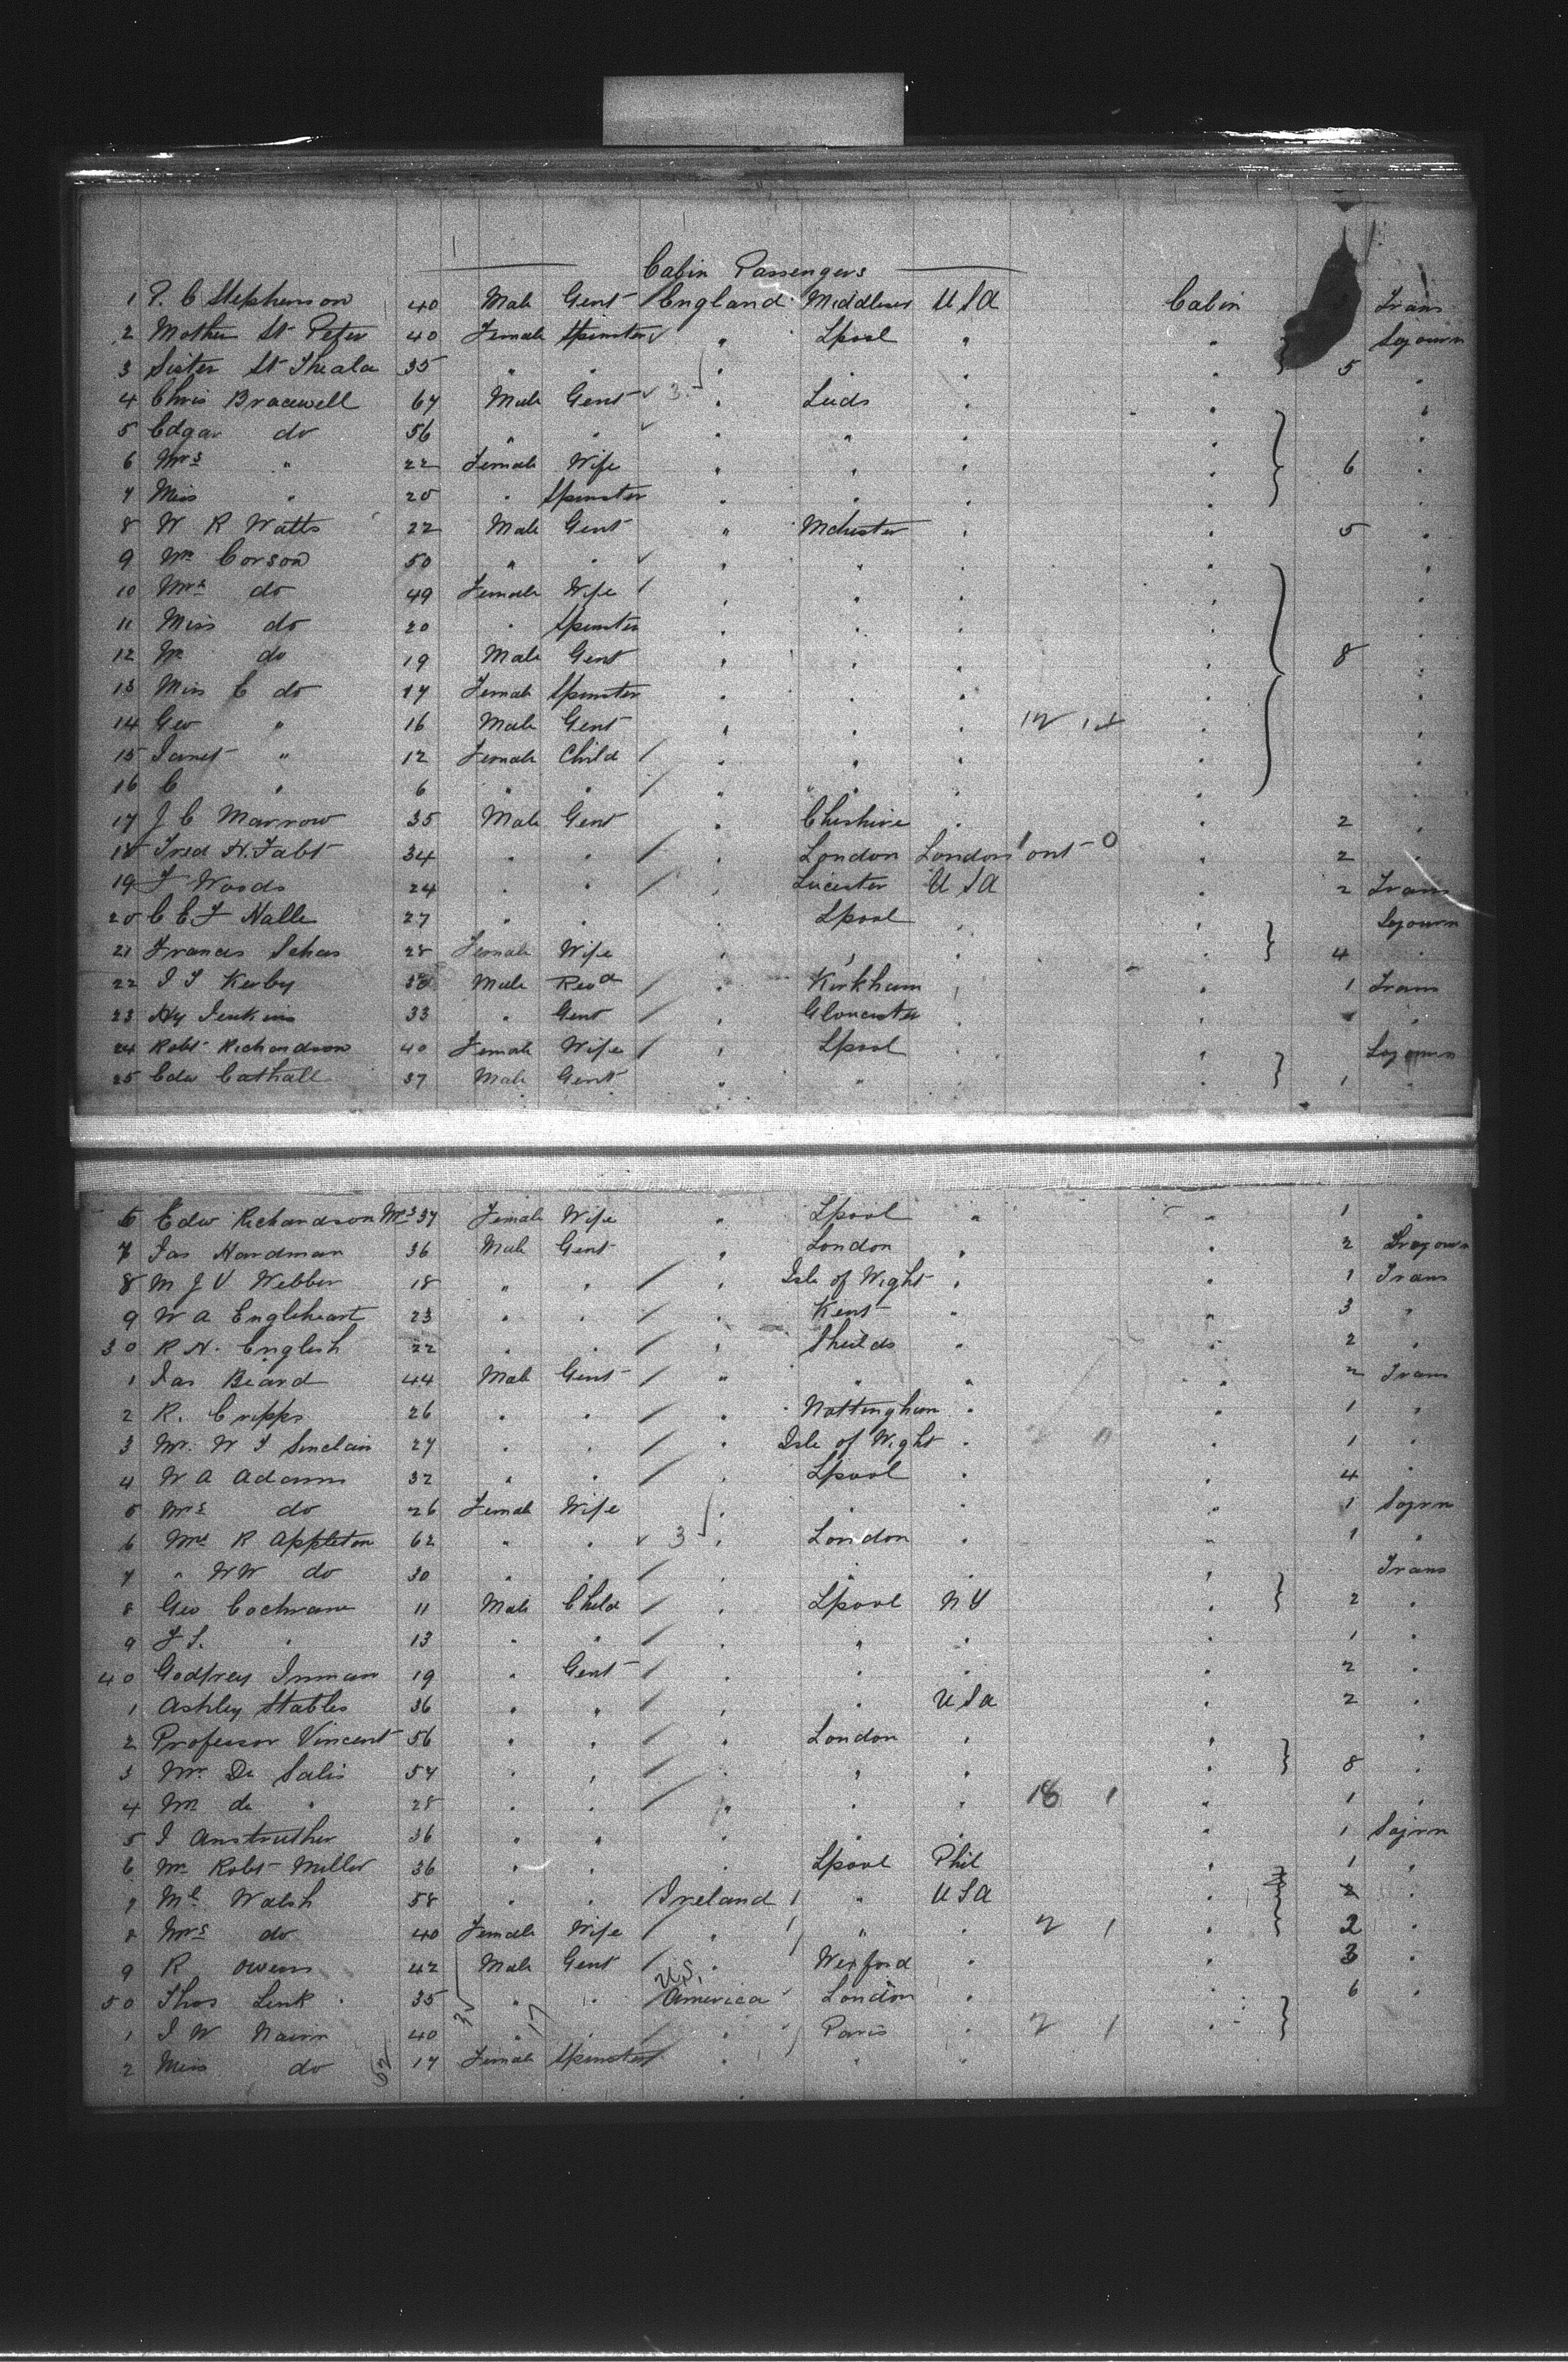 Cabin Passengers
1 P. C Stephenson 40 Male Gent England Middlesex USA Cabin Trans
2 Mother St Peter 40 Female Spinster " Lpool " " Sojourn
3 Sister St Theala 35 " " " " " " 5 "
4 Chris Bracewell 67 Male Gent 3 Leeds " " "
5 Edgar do 56 " " " " " " "
6 Mrs " 22 Female Wife " " " " 6 "
7 Miss " 20 " Spinster " " " " "
8 W R Watts 22 Male Gent " Mchester " " 5 "
9 Mr Corson 50 " " " " " " "
10 Mrs do 49 Female Wife " " " " "
11 Miss do 20 " Spinster " " " " "
12 Mr do 19 Male Gent " " " " 8 "
13 Miss C do 17 Female Spinster " " " " "
14 Geo " 16 Male Gent " " " 12 " "
15 Janet " 12 Female Child " " " " "
16 C " 6 " " " " " " "
17 J C Marrow 35 Male Gent " Cheshire " " 2 "
18 Fred H. Fabt 34 " " " London London ont O " 2 "
19 F Woods 24 " " " Leicester USA " 2 Trans
20 C E. F Halle 27 " " " Lpool " " Sojourn
21 Frances Schas 28 Female Wife " " " " 4 "
22 I I Kerby Male Revd " Kirkham " " 1 Trans
23 Hy Jenkins 33 " Gent " Gloucester " " "
24 Robt Richardson 40 Female Wife " Lpool " " Sojourn
25 Edw Cathall 37 Male Gent " " " " 1 "
6 Edw Richardson Mrs 37 Female Wife " Lpool " " 1 "
7 Jas Hardman 36 Male Gent " London " " 2 Sojourn
8 M J V Webber 18 " " " Isle of Wight " " 1 Trans
9 W A Engleheart 23 " " " Kent " " 3 "
30 R N. English 22 " " " Sheilds " " 2 "
1 Jas Beard 44 Male Gent " " " " 2 Trans
2 R. Cripps 26 " " " Nottingham " " 1 "
3 Mr. W J Sinclair 27 " " " Isle of Wight " " 1 "
4 W A Adams 32 " " " Lpool " " 4 "
5 Mrs do 26 Female Wife " " " " 1 Sojrn
6 Mrs R Appleton 62 " " 3 " London " " 1 "
7 " WW do 30 " " " " " " Trans
8 Geo Cochrane 11 Male Child " Lpool NY " 2 "
9 F S. " 13 " " " " " " 1 "
40 Godfrey Inman 19 " Gent " " " " 2 "
1 Ashley Stables 36 " " " " USA " 2 "
2 Professor Vincent 56 " " " London " " "
3 Mr. De Salis 57 " " " " " " 8 "
4 M de " 28 " " " " " 18 1 " 1 "
5 I Anstruther 36 " " " " " " 1 Sojrn
6 Mr Robt Miller 36 " " " Lpool Phil " 1 "
7 Mr Walsh 58 " " Ireland " USA " 2 "
8 Mrs do 40 Female Wife " " " 2 1 " 2 "
9 R Owens 42 Male Gent " Wexford " " 3 "
U.S.
50 Thos Link 35 " " America London " " 6 "
1 I W Nairn 40 " 17 " " Paris " 2 1 "
2 Miss do 62 17 Female Spinster " " "